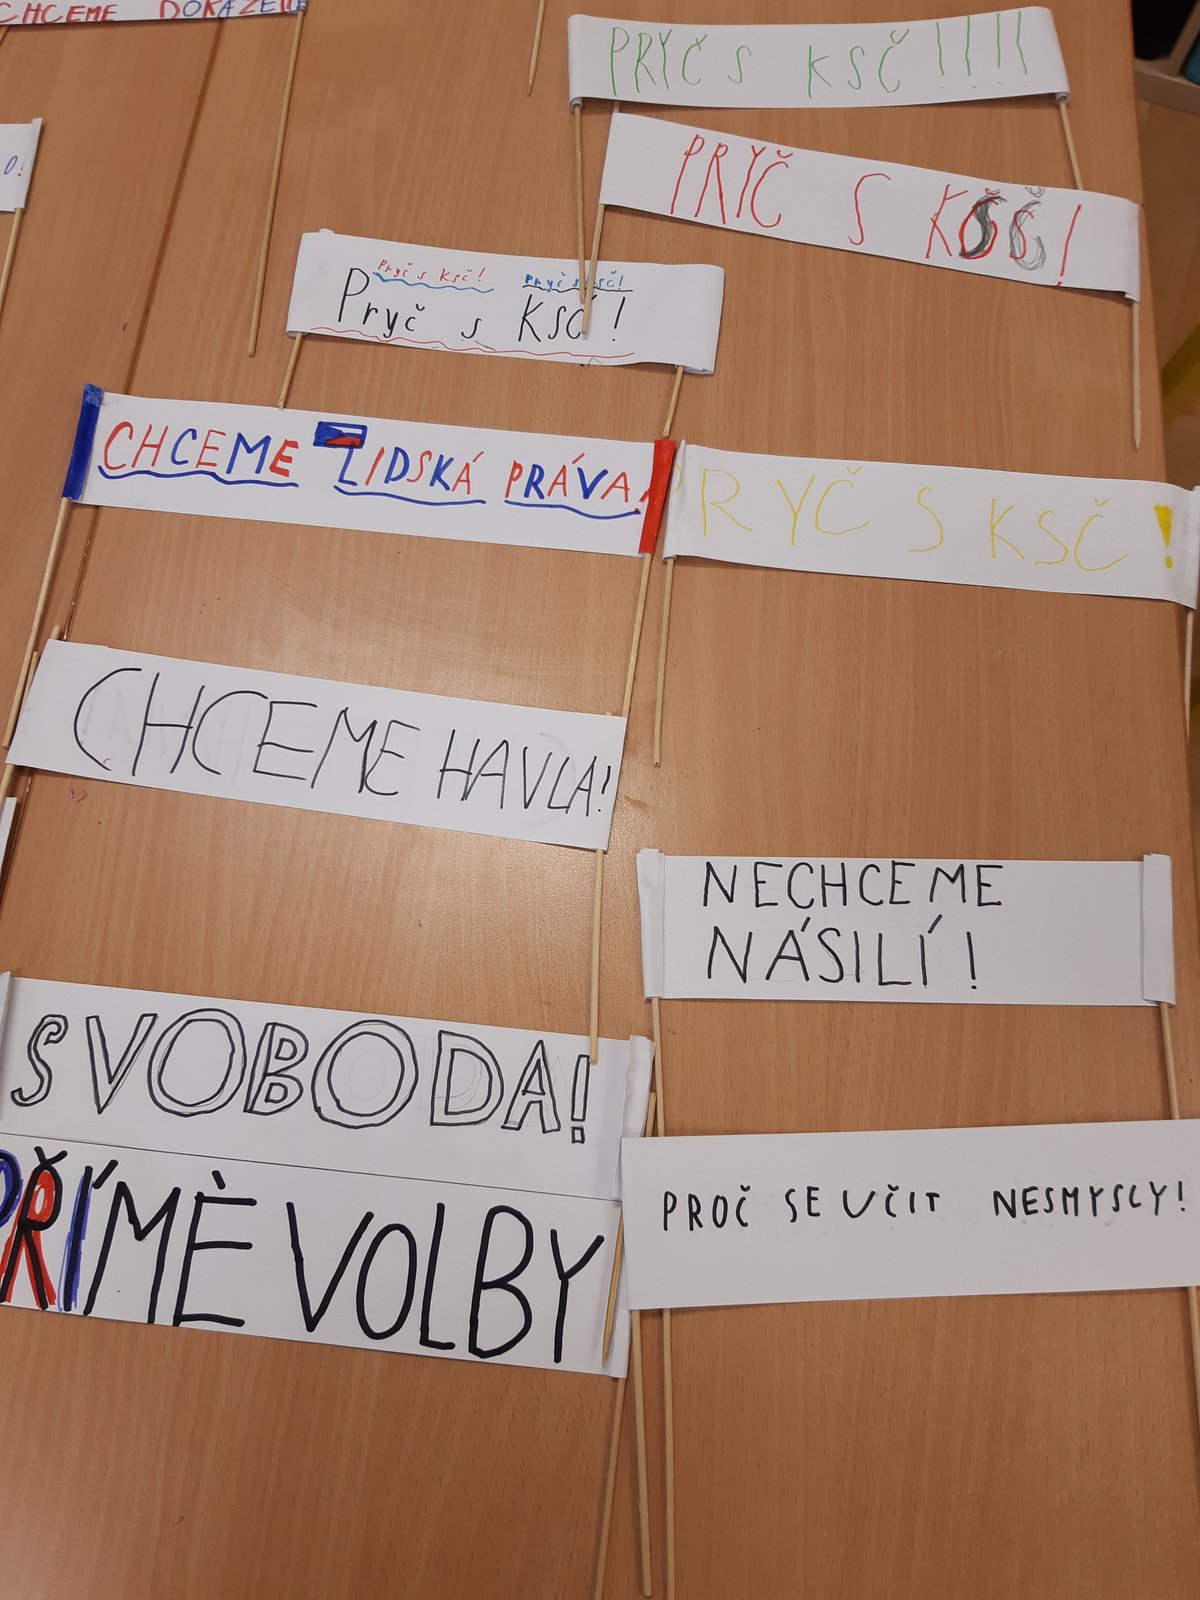 CHCEME DOKÁŽEME
PRYČ S KSČ!!!!
O!
PRYČ S KSČ!
Pryč s KSČ! Pryč s KSČ!
Pryč s KSČ!
CHCEME LIDSKÁ PRÁVA!
PRYČ S KSČ!
CHCEME HAVLA!
NECHCEME
NÁSILÍ!
SVOBODA!
PŘÍMÉ VOLBY
PROČ SE UČIT NESMYSLY!